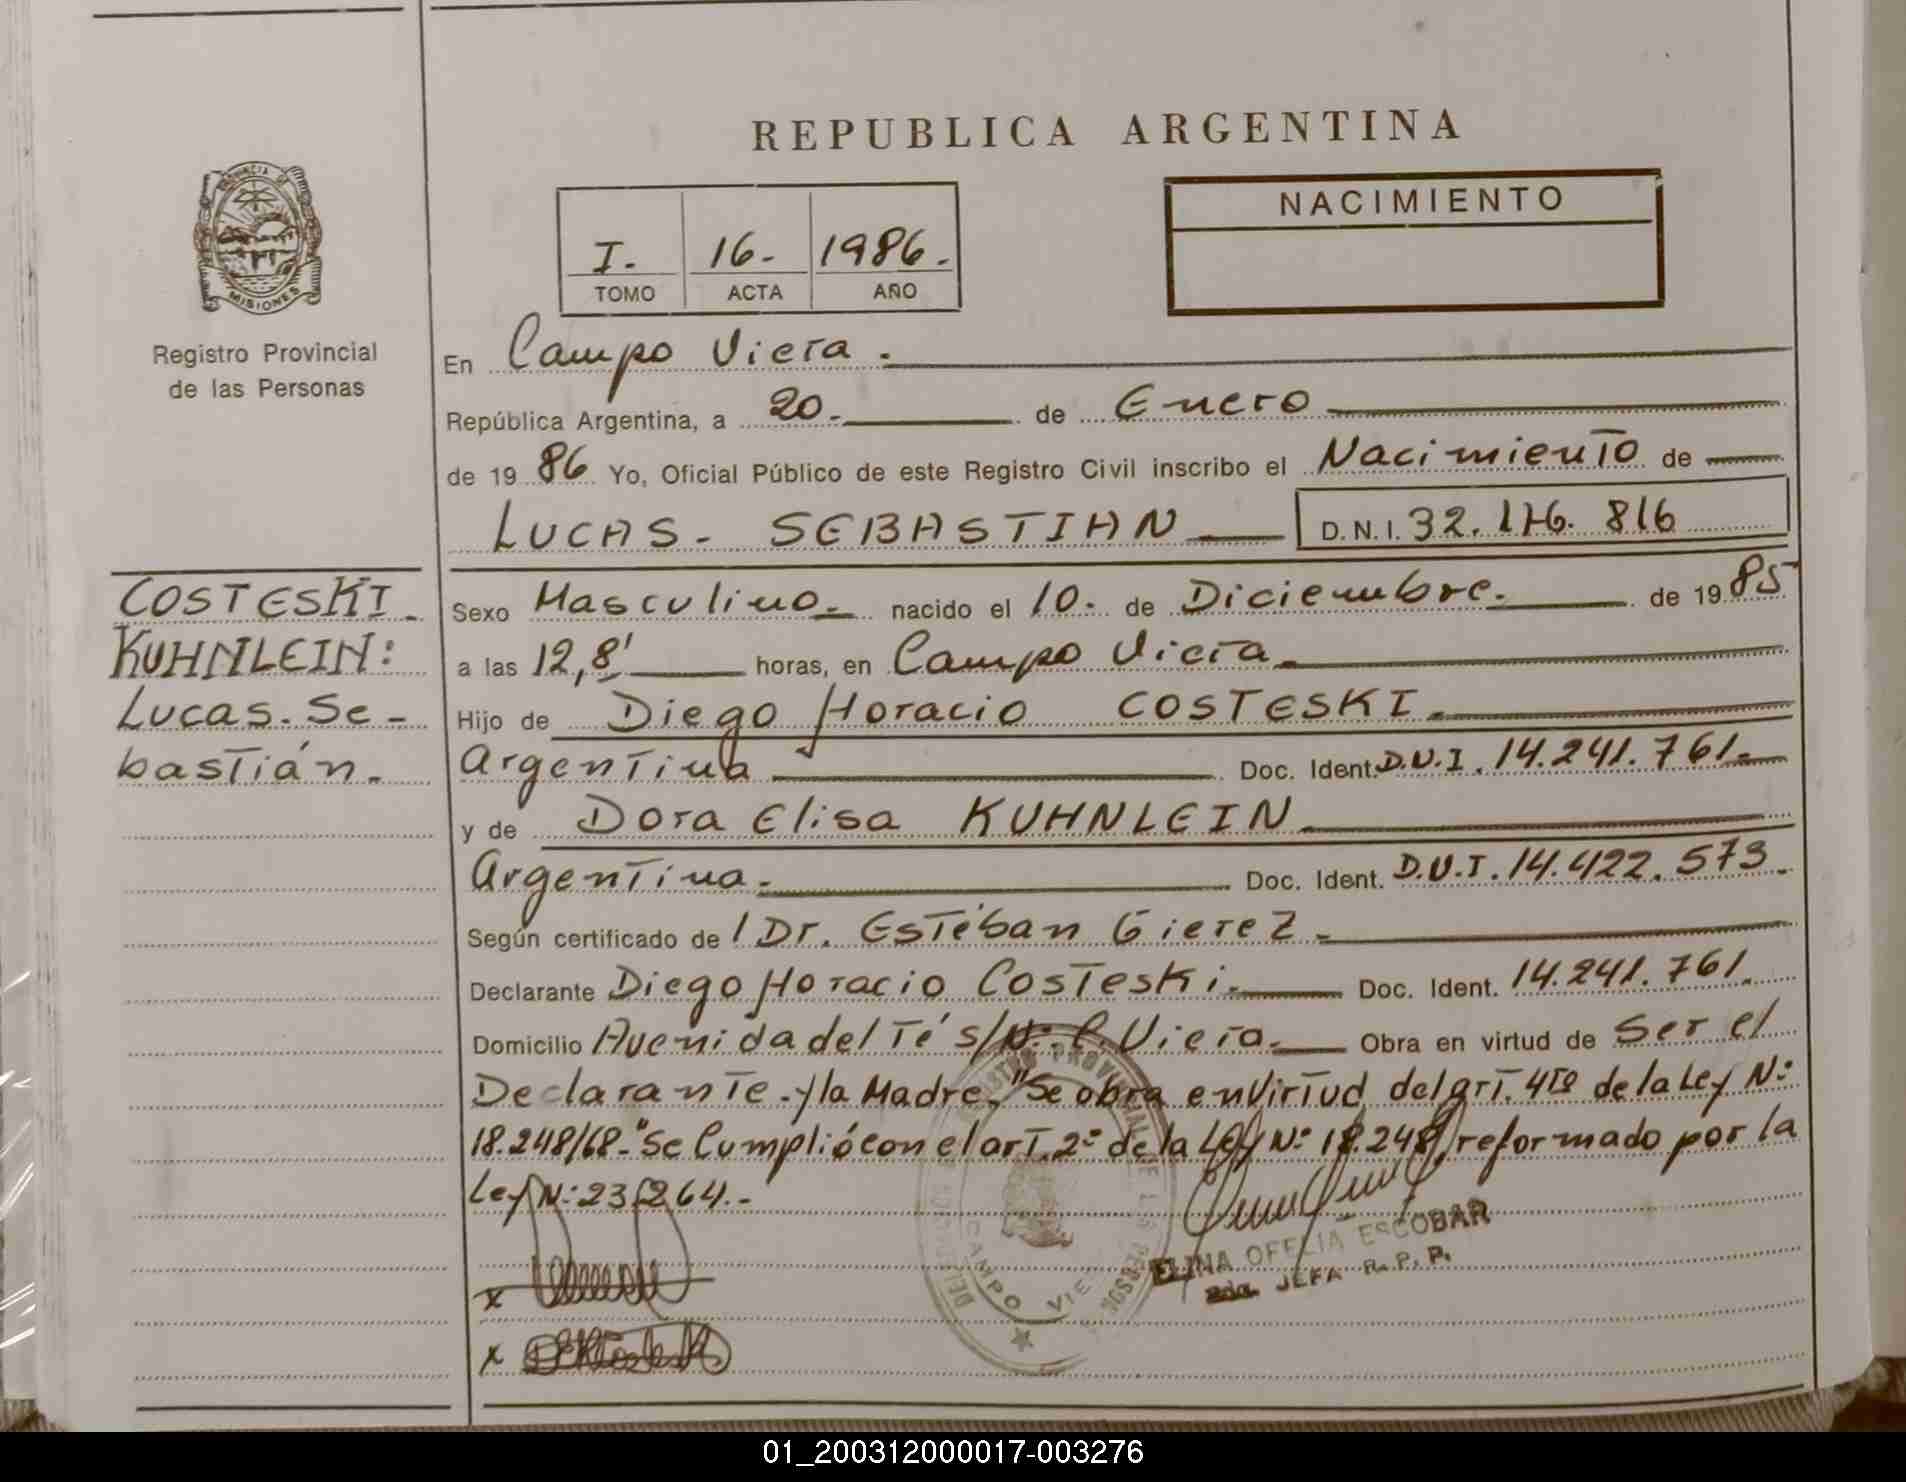 REPUBLICA ARGENTINA
PROVINCIA DE
MISIONES
Registro Provincial
de las Personas
I. 16- 1986.
TOMO ACTA AÑO
NACIMIENTO
En Campo Viera.
República Argentina, a 20. de Enero
de 19 86 Yo, Oficial Público de este Registro Civil inscribo el Nacimiento de
LUCAS- SEBASTIAN D.N.I. 32.176.816
COSTESKI
KUHNLEIN:
Lucas. Se-
bastián.
Sexo Masculino. nacido el 10. de Diciembre. de 19 85
a las 12,8' horas, en Campo Viera
Hijo de Diego Horacio COSTESKI.
Argentina Doc. Ident. D.N.I. 14.241.761-
y de Dora Elisa KUHNLEIN
Argentina. Doc. Ident. D.N.I. 14.422.573
Según certificado de / Dr. Estéban Gierez.
Declarante Diego Horacio Costeski. Doc. Ident. 14.241.761.
Domicilio Avenida del Té s/N: C. Viera. Obra en virtud de Ser el
Declarante. y la Madre. "Se obra en Virtud del art. 4to de la Ley N:
18.248/68-"Se Cumplió con el art. 2° de la Ley N: 18.248, reformado por la
Ley N: 23.264.-
CAMPO VIE
ELINA OFELIA ESCOBAR
2da. JEFA R. P. P.
x
x
01_200312000017-003276